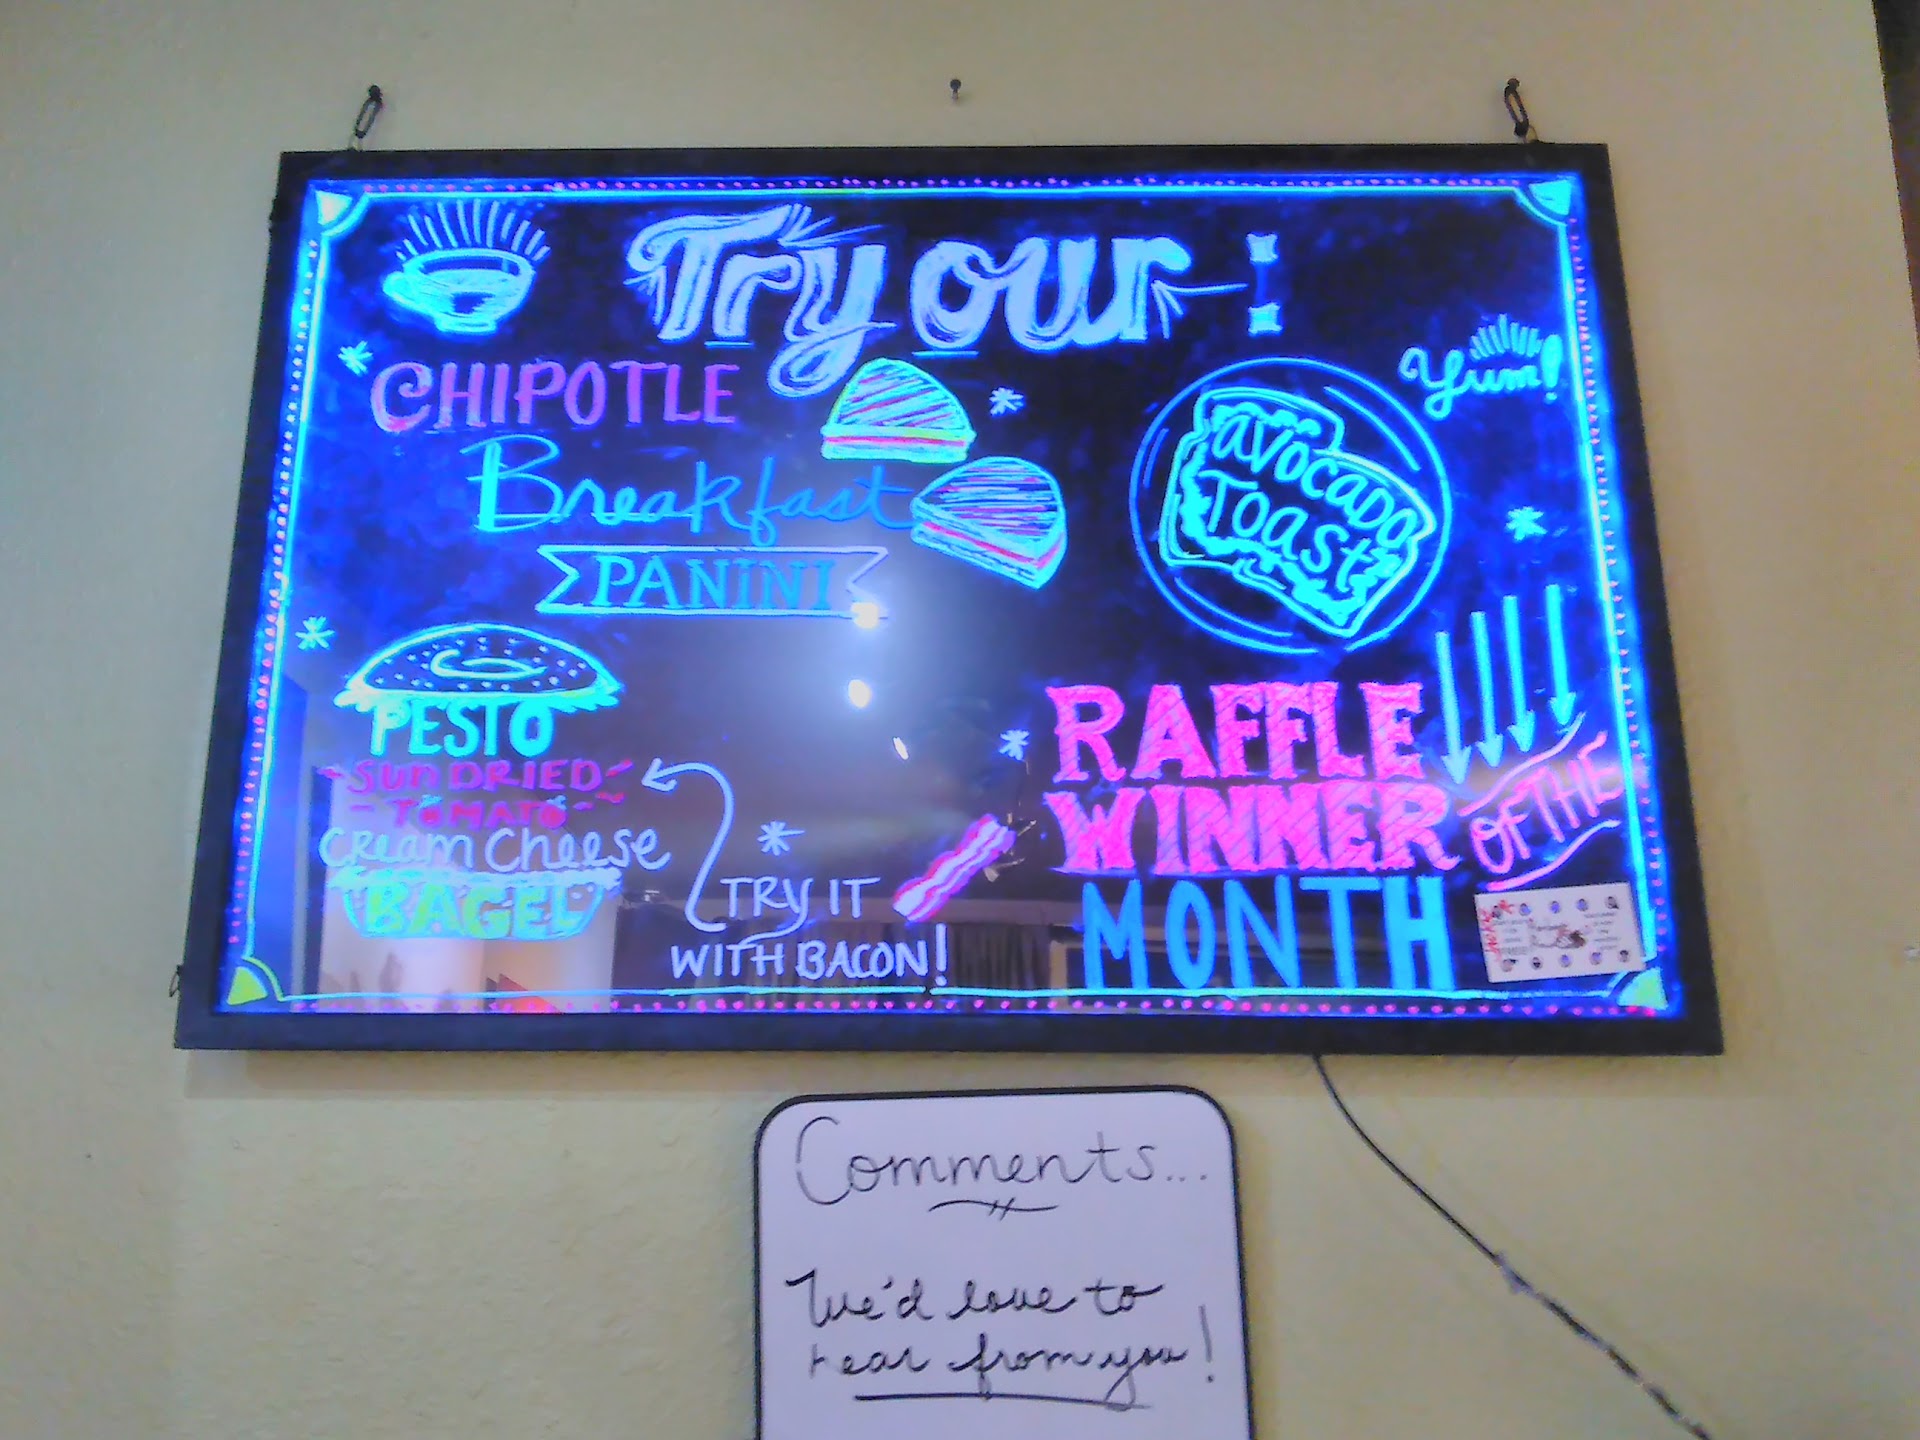 Try our :
CHIPOTLE
Breakfast
PANINI
Yum!
avocado
Toast
PESTO
SUN DRIED
TOMATO
Cream Cheese
BAGEL
TRY IT
WITH BACON!
RAFFLE
WINNER
OF THE
MONTH
Comments...
We'd love to
hear from you!